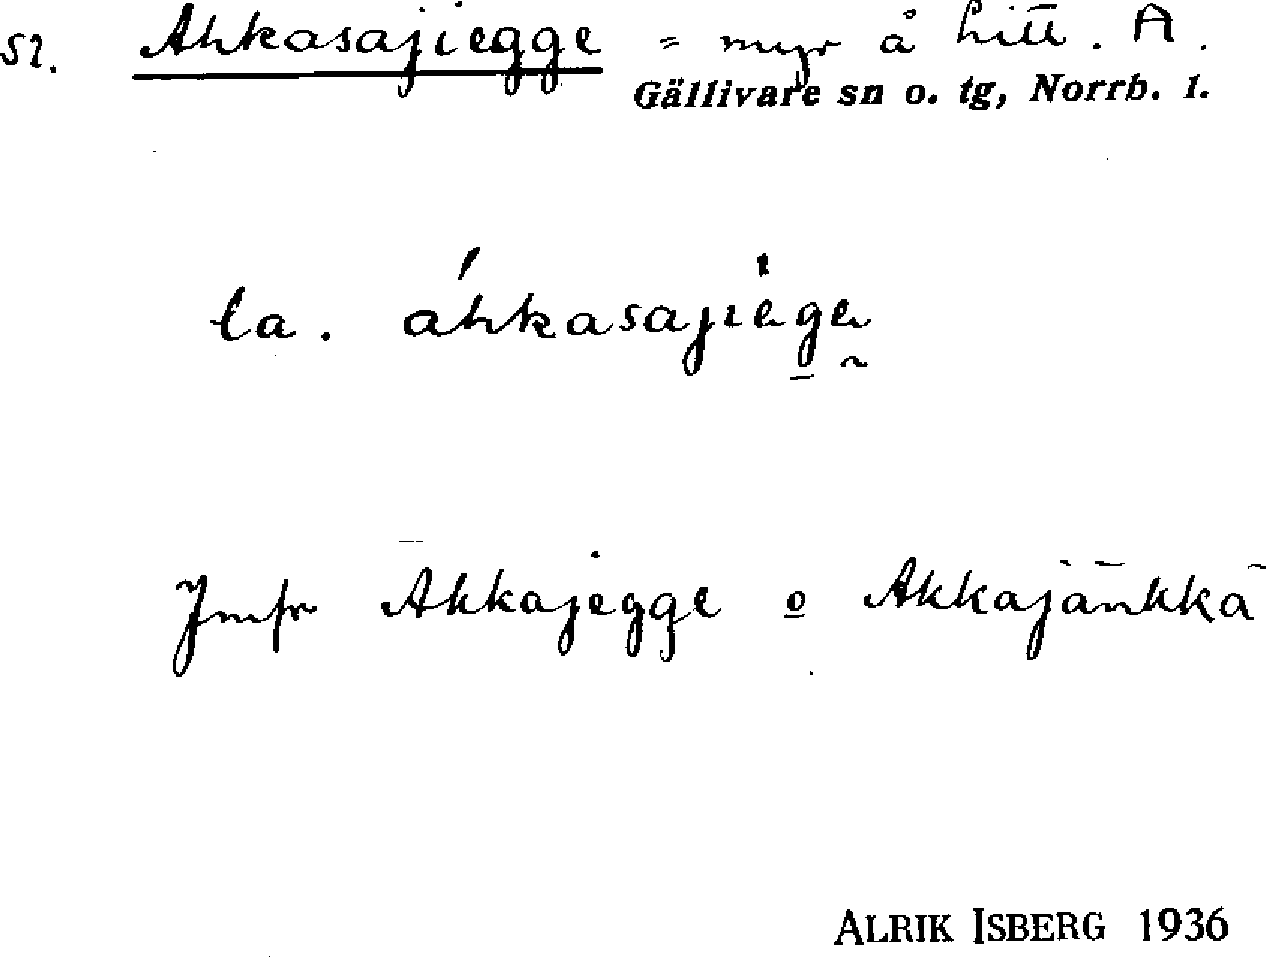 52. Ahkasajiegge = myr å hitt. A.
Gällivare sn o. tg, Norrb. l.
la. áhkasajiege
Jmfr Akkajegge o Akkajänkkä
ALRIK ISBERG 1936